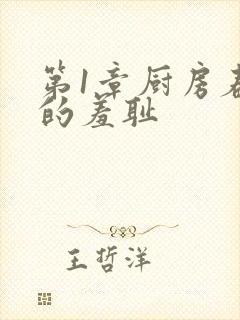 第1章厨房
的羞耻
王哲洋